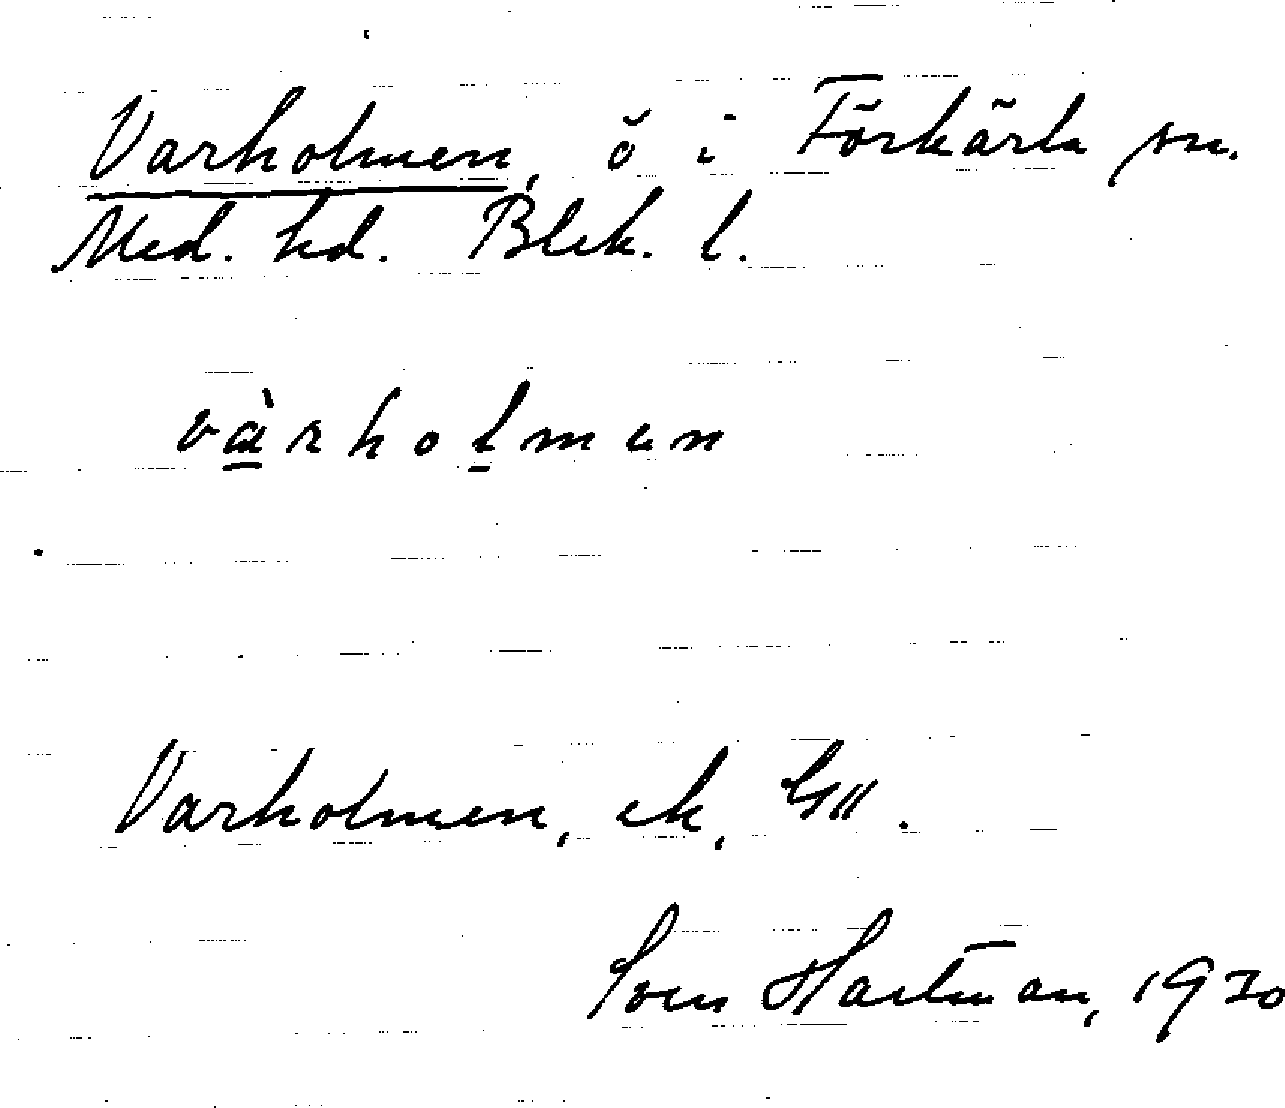 Varholmen, ö i Förkärla sn.
Med. hd. Blek. l.
vàrholmen
Varholmen, ek, GK.
Sven Hartman, 1930